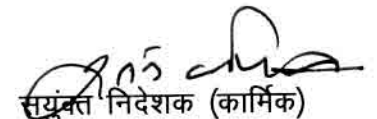 सयुंक्त निदेशक (कार्मिक)